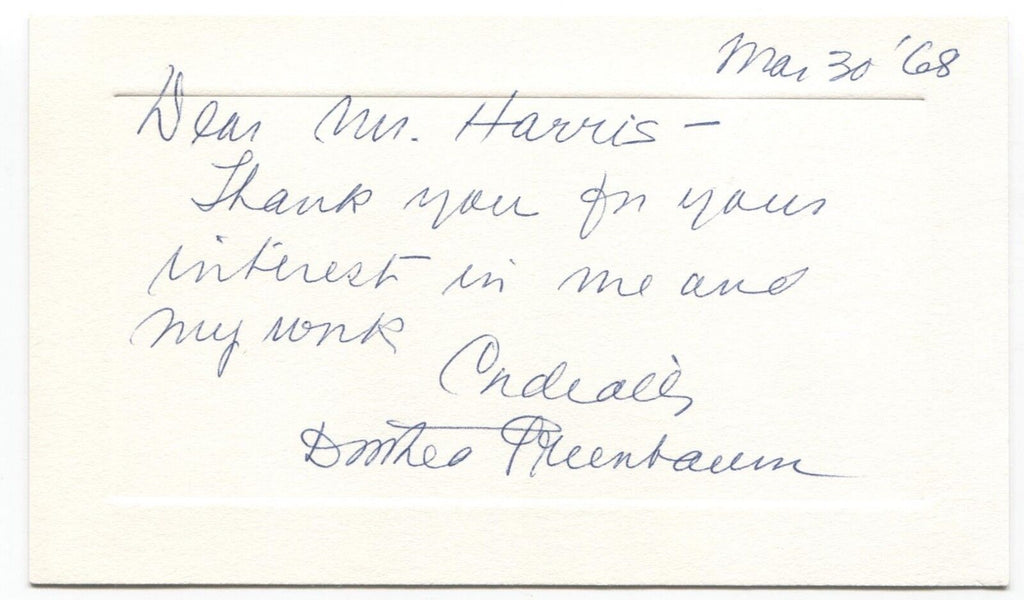 Mar 30 '68
Dear Mr. Harris -
Thank you for your
interest in me and
my work
Cordially
Dorothea Greenbaum